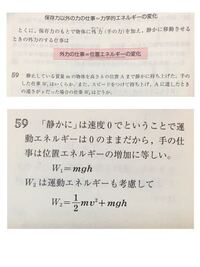 保存力以外の力の仕事=力学的エネルギーの変化
とくに、保存力のもとで物体に外力(手の力)を加え、静かに移動させる
ときの外力のする仕事は
外力の仕事=位置エネルギーの変化
59 静止している質量mの物体を高さhの位置Aまで静かに持ち上げた。手の
した仕事W₁はいくらか。また、スピードをつけて持ち上げ、Aに達したと
きの速さがvだった場合の仕事W₂はどうか。
59 「静かに」は速度0でということで運
動エネルギーは0のままだから、手の仕
事は位置エネルギーの増加に等しい。
W₁=mgh
W₂は運動エネルギーも考慮して
W₂=1/2mv²+mgh